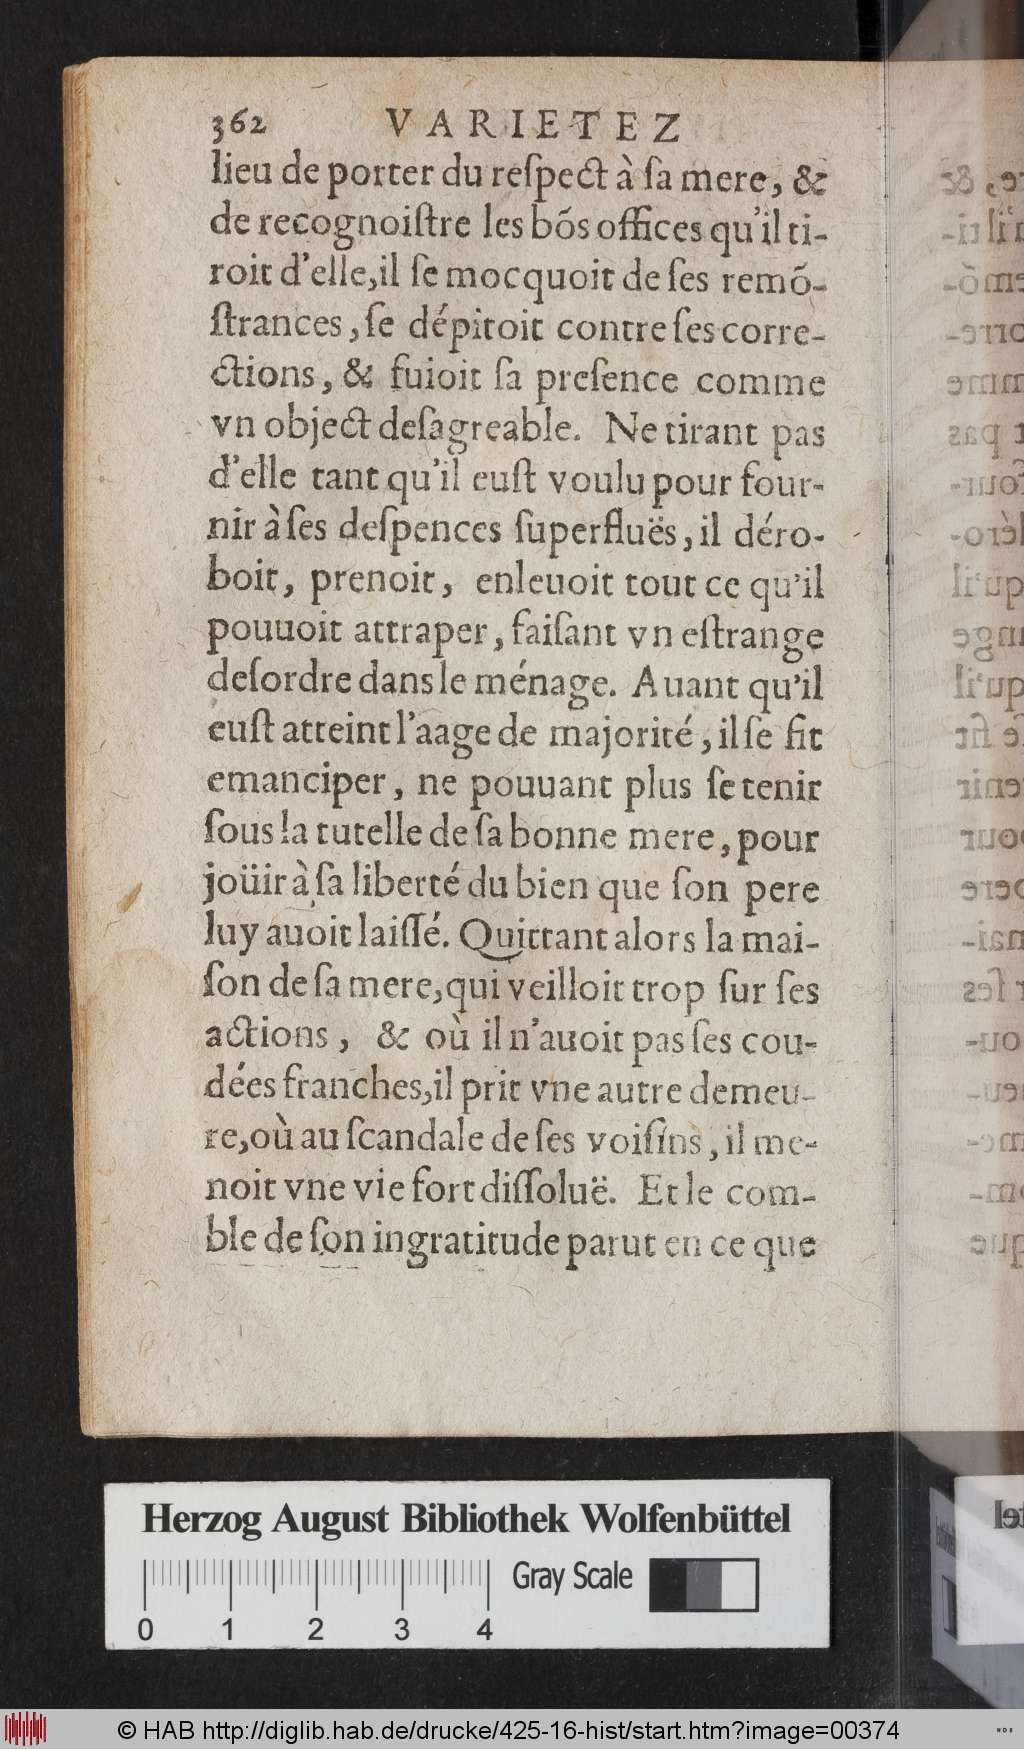 362 VARIETEZ
lieu de porter du reſpect à ſa mere, &
de recognoiſtre les bõs offices qu'il ti-
roit d'elle,il ſe mocquoit de ſes remõ-
ſtrances, ſe dépitoit contre ſes corre-
ctions, & fuioit ſa preſence comme
vn object deſagreable. Ne tirant pas
d'elle tant qu'il euſt voulu pour four-
nir à ſes deſpences ſuperfluës, il déro-
boit, prenoit, enleuoit tout ce qu'il
pouuoit attraper, faiſant vn eſtrange
deſordre dans le ménage. Auant qu'il
euſt atteint l'aage de majorité, il ſe fit
emanciper, ne pouuant plus ſe tenir
ſous la tutelle de ſa bonne mere, pour
joüir à ſa liberté du bien que ſon pere
luy auoit laiſſé. Quittant alors la mai-
ſon de ſa mere,qui veilloit trop ſur ſes
actions, & où il n'auoit pas ſes cou-
dées franches,il prit vne autre demeu-
re,où au ſcandale de ſes voiſins, il me-
noit vne vie fort diſſoluë. Et le com-
ble de ſon ingratitude parut en ce que
Herzog August Bibliothek Wolfenbüttel
Gray Scale
0 1 2 3 4
© HAB http://diglib.hab.de/drucke/425-16-hist/start.htm?image=00374